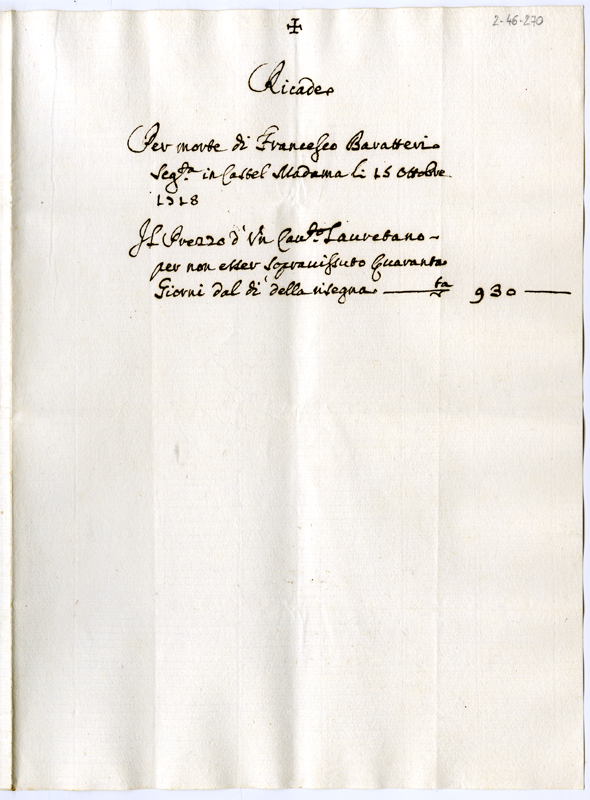 2-46-270
✠
Ricade
Per morte di Francesco Baratteri
seg.ta in Castel Madama li 15 Ottobre
1718
Il Prezzo d'Un Cau.to Lauretano
per non esser soprauissuto Quaranta
Giorni dal di della risegna — 930 —